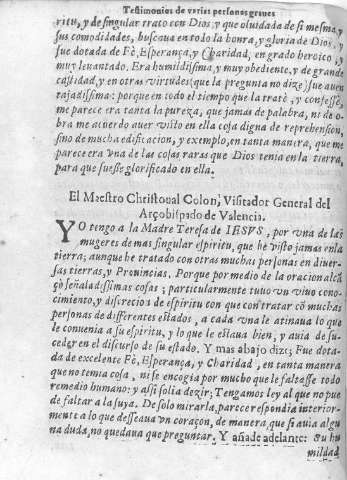 Testimonios de varias personas graues
ritu, y de singular trato con Dios, y que oluidada de si mesma, y
sus comodidades, buscaua en todo la honra, y gloria de Dios, y
fue dotada de Fè, Esperança, y Charidad, en grado heroico, y
muy leuantado. Era humildissima, y muy obediente, y de grande
castidad, y en otras virtudes (que la pregunta no dize) fue auen
tajadissima: porque en todo el tiempo que la tratè, y confessè,
me parece era tanta la pureza, que jamas de palabra, ni de o-
bra me acuerdo auer visto en ella cosa digna de reprehension,
sino de mucha edificacion, y exemplo, en tanta manera, que me
parece era vna de las cosas raras que Dios tenia en la tierra,
para que fuesse glorificado en ella.
El Maestro Christoual Colon, Visitador General del
Arçobispado de Valencia.
YO tengo a la Madre Teresa de IESVS, por vna de las
mugeres de mas singular espiritu, que he visto jamas en la
tierra; aunque he tratado con otras muchas personas en diuer-
sas tierras, y Prouincias. Porque por medio de la oracion alcã
çò señaladissimas cosas; particularmente tuuo vn viuo cono-
cimiento, y discrecion de espiritu con que con tratar cõ muchas
personas de differentes estados, a cada vna le atinaua lo que
le conuenia a su espiritu, y lo que le estaua bien, y auia de su-
ceder en el discurso de su estado. Y mas abajo dize: Fue dota-
da de excelente Fè, Esperança, y Charidad, en tanta manera
que no temia cosa, ni se encogia por mucho que le faltasse todo
remedio humano: y assi solia dezir; Tengamos ley al que no pue
de faltar a la suya. De solo mirarla, parece respondia interior-
mente a lo que desseaua vn coraçon, de manera, que si auia algu
na duda, no quedaua que preguntar. Y añade adelante: Su hu
mildad